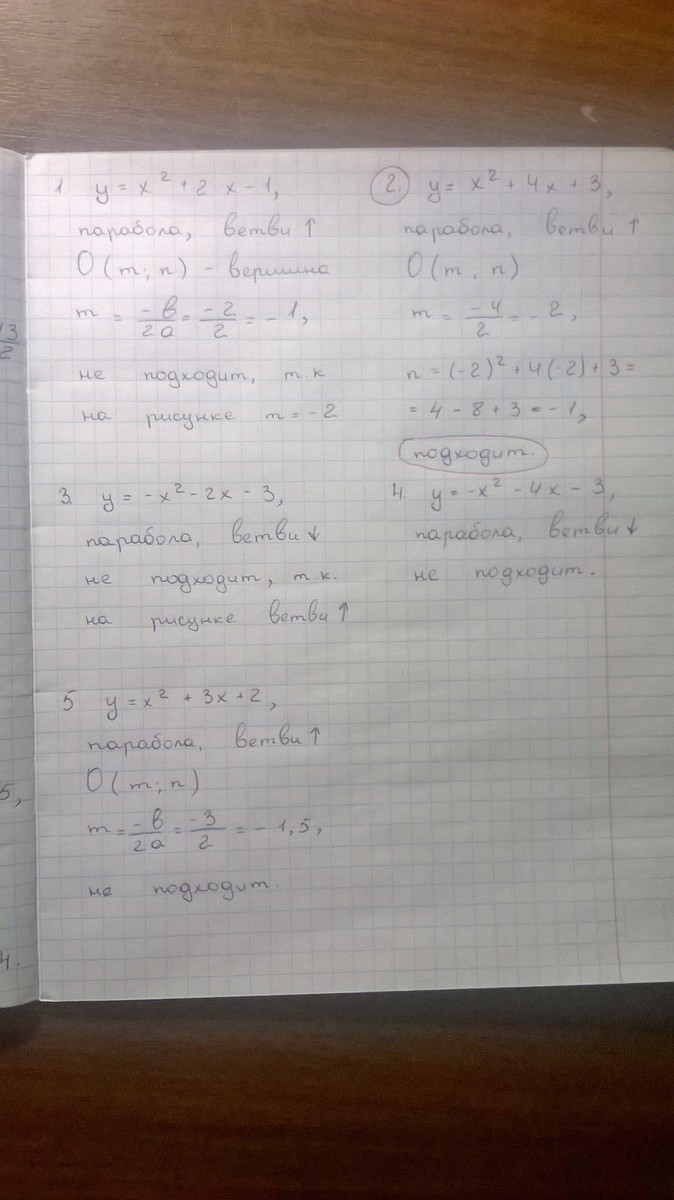 1. y = x² + 2x - 1,
парабола, ветви ↑
O(m; n) - вершина
m = -b/2a = -2/2 = -1,
не подходит, т.к.
на рисунке m = -2
2. y = x² + 4x + 3,
парабола, ветви ↑
O(m, n)
m = -4/2 = -2,
n = (-2)² + 4(-2) + 3 =
= 4 - 8 + 3 = -1,
подходит.
3. y = -x² - 2x - 3,
парабола, ветви ↓
не подходит, т.к.
на рисунке ветви ↑
4. y = -x² - 4x - 3,
парабола, ветви ↓
не подходит.
5 y = x² + 3x + 2,
парабола, ветви ↑
O(m; n)
m = -b/2a = -3/2 = -1,5,
не подходит.